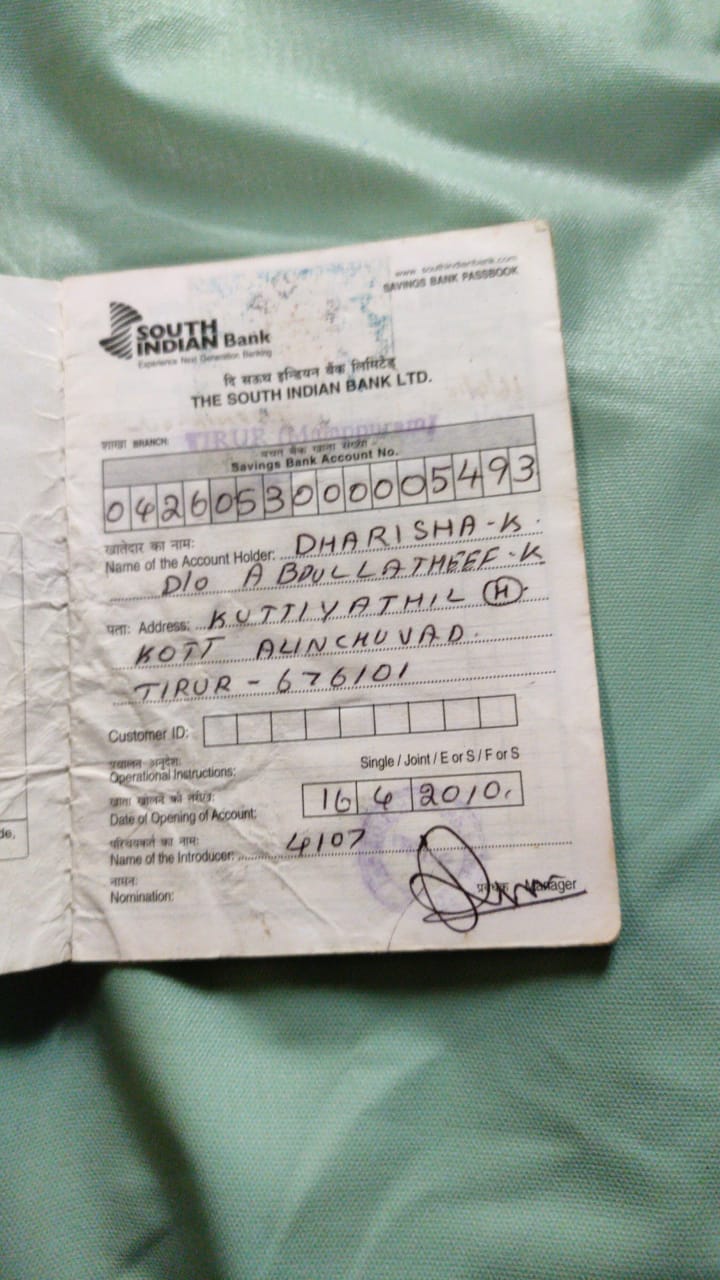 www.southindianbank.com
SAVINGS BANK PASSBOOK
SOUTH
INDIAN Bank
Experience Next Generation Banking
दि साउथ इन्डियन बैंक लिमिटेड
THE SOUTH INDIAN BANK LTD.
शाखा BRANCH: TIRUR (Malappuram)
बचत बैंक खाता संख्या
Savings Bank Account No.
0426053000005493
खातेदार का नाम:
Name of the Account Holder: DHARISHA-K.
D/o ABDULLATHEEF-K
पता: Address: KUTTIYATHIL (H).
KOTT ALINCHUVAD.
TIRUR - 676101
Customer ID:
Single / Joint / E or S / F or S
Operational Instructions:
खाता खोलने की तारीख:
Date of Opening of Account: 16 4 2010.
परिचयकर्ता का नाम:
Name of the Introducer: 4107
नामन:
Nomination:
प्रबंधक Manager
de,